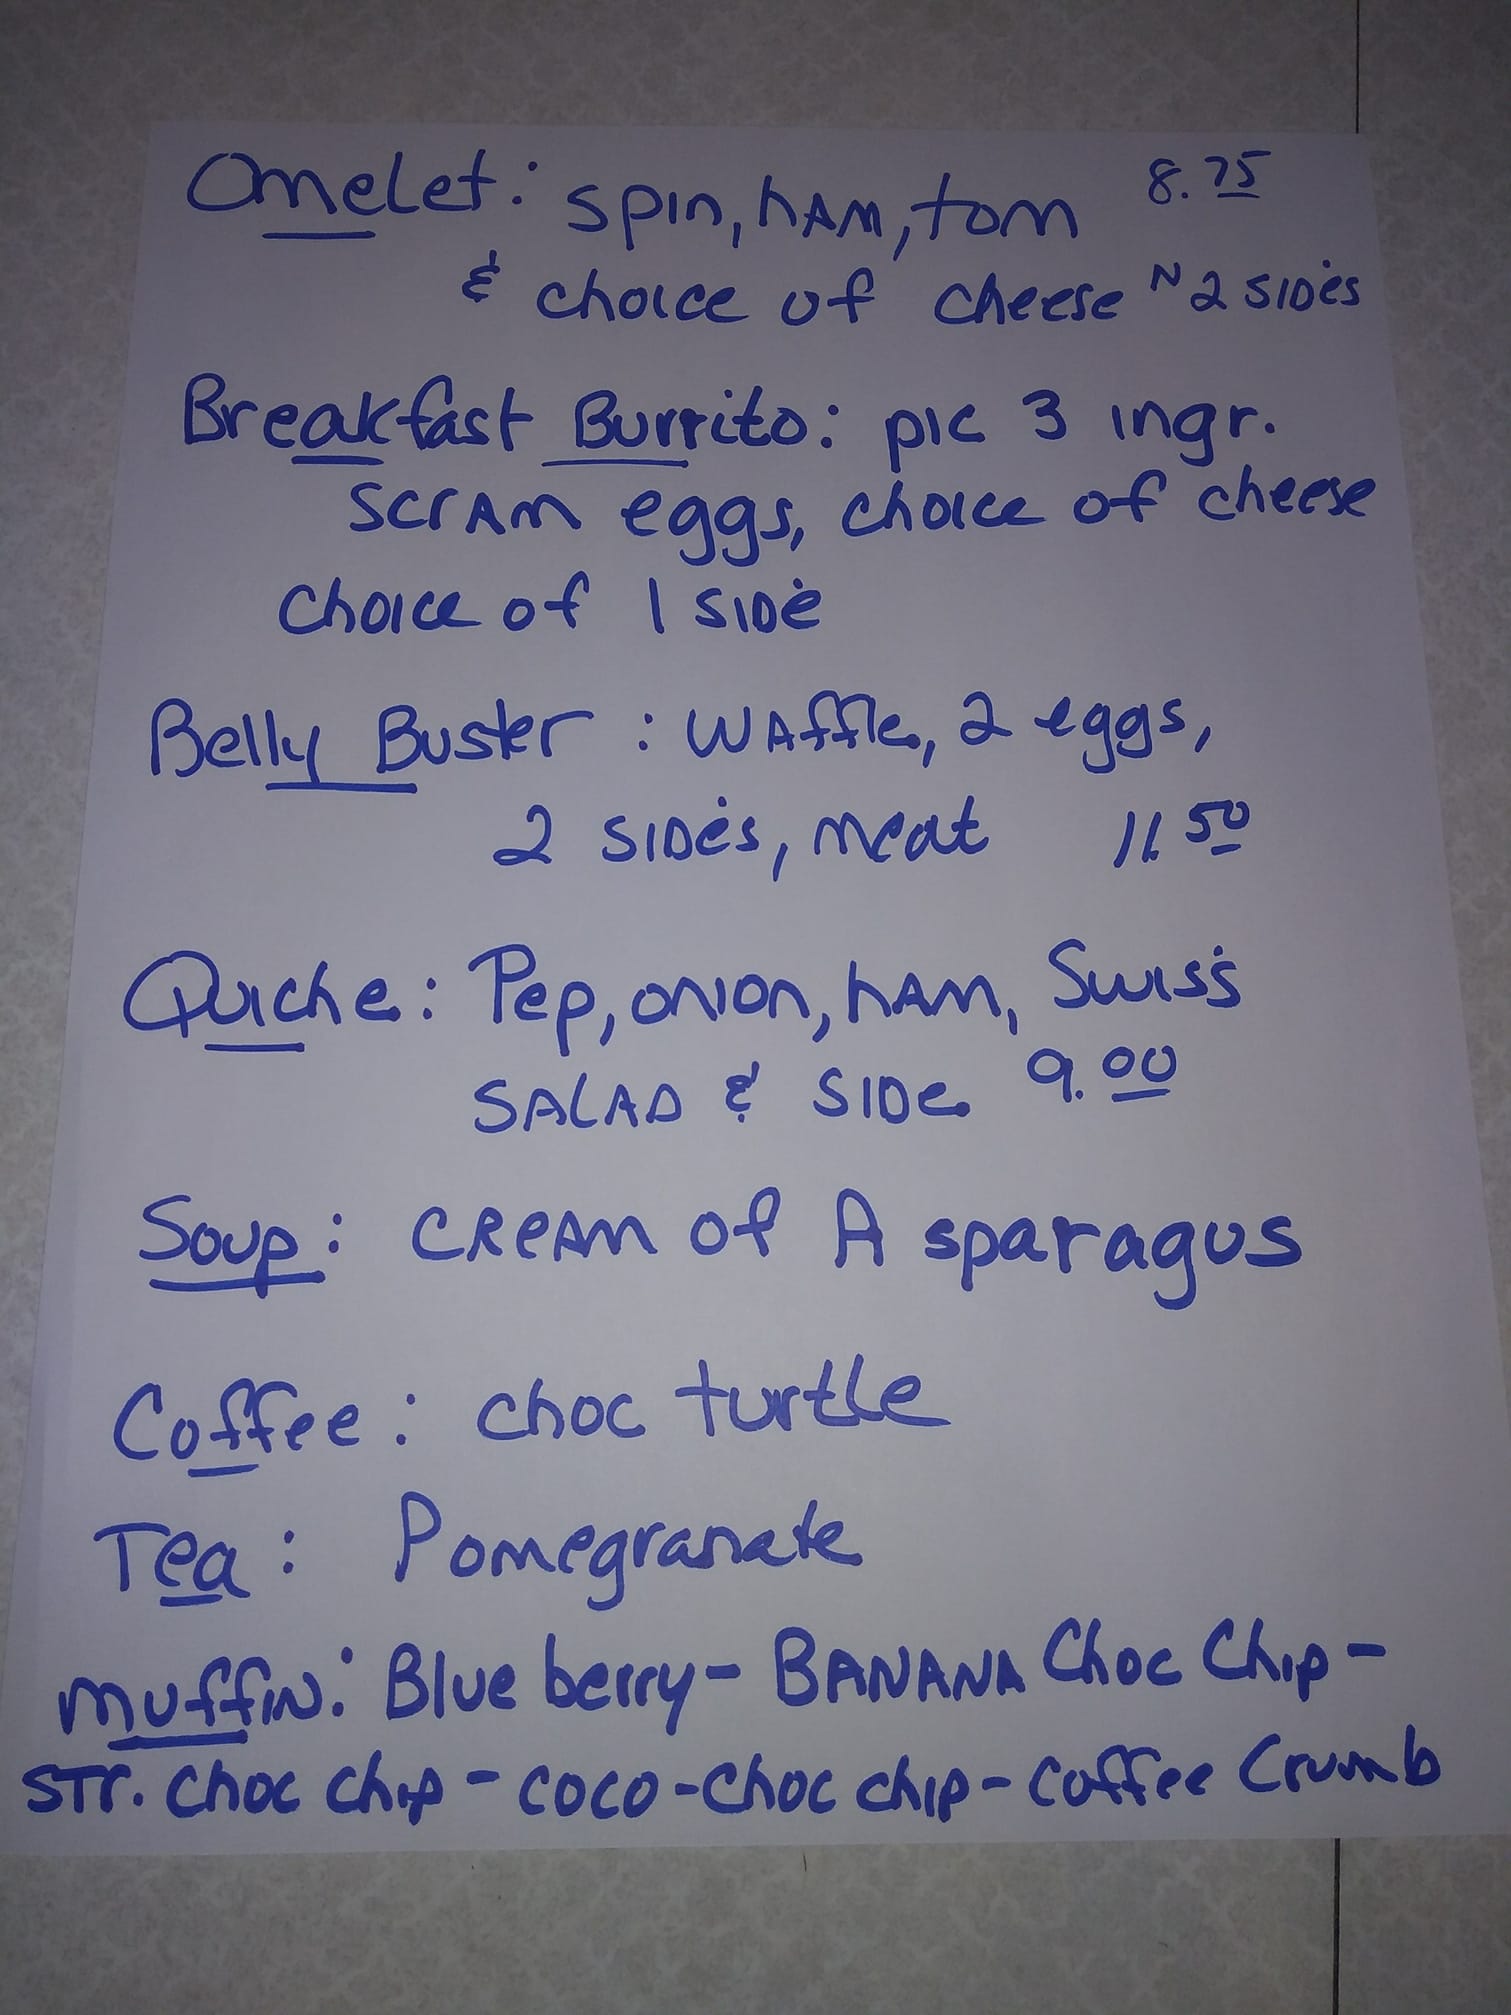 Omelet: spin, ham, tom 8.75
& choice of cheese N 2 sides
Breakfast Burrito: pic 3 ingr.
scram eggs, choice of cheese
choice of 1 side
Belly Buster: Waffle, 2 eggs,
2 sides, meat 11.50
Quiche: Pep, onion, ham, Swiss
SALAD & SIDe 9.00
Soup: CReAM of Asparagus
Coffee: choc turtle
Tea: Pomegranate
muffin: Blueberry - BANANA Choc Chip -
STr. Choc chip - coco - Choc chip - Coffee Crumb